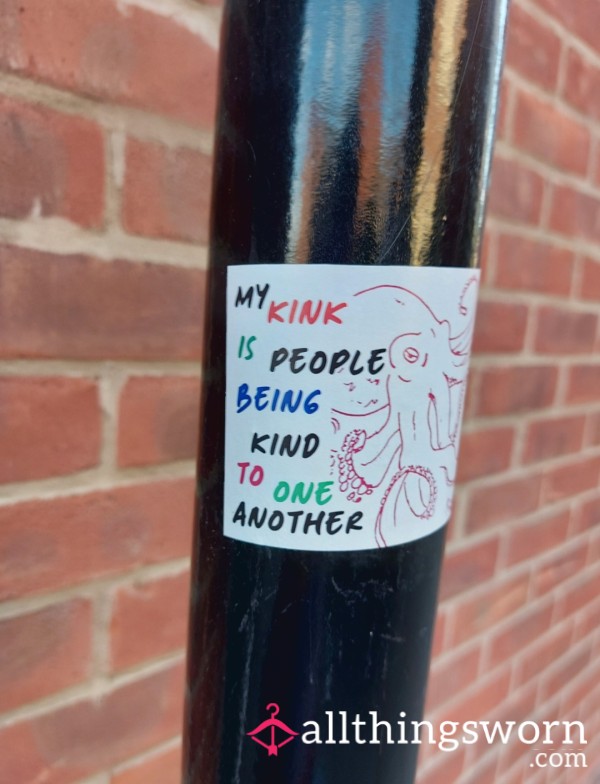 MY KINK
IS PEOPLE
BEING
KIND
TO ONE
ANOTHER
allthingsworn
.com